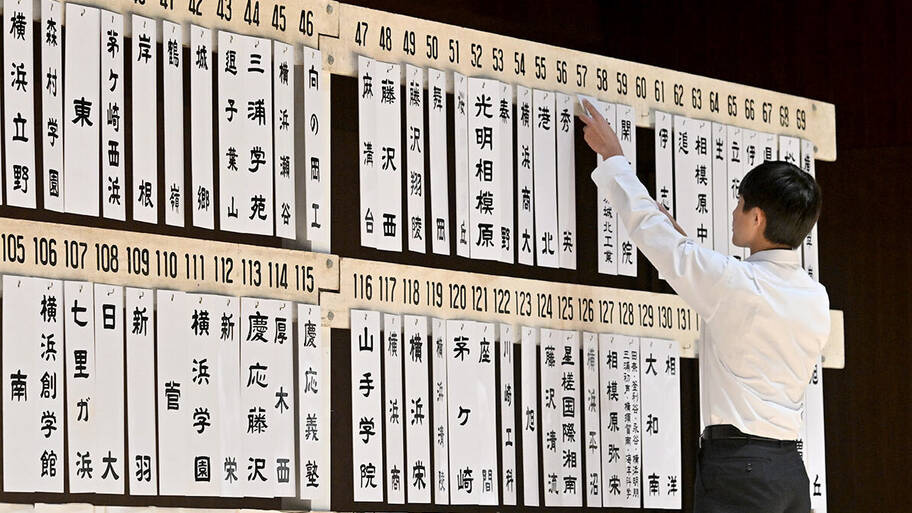 43 44 45 46
47 48 49 50 51 52 53 54 55 56 57 58 59 60 61 62 63 64 65 66 67 68 69
横浜立野
森村学園
東
茅ケ崎西浜
岸根
鶴嶺
城郷
逗子葉山
三浦学苑
横浜瀬谷
向の岡工
麻溝台
藤沢西
藤沢翔陵
舞岡
光明相模原
秦野
横浜商大
港北
秀英
城北工業
関
院
伊志
追
相模原中
105 106 107 108 109 110 111 112 113 114 115
116 117 118 119 120 121 122 123 124 125 126 127 128 129 130 131
南
横浜創学館
七里ガ浜
日大
新羽
菅
横浜学園
新栄
慶応藤沢
厚木西
慶応義塾
山手学院
横浜商
横浜栄
横浜清陵
茅ケ崎
座間
川崎工科
旭
藤沢清流
星槎国際湘南
横浜平沼
相模原弥栄
田奈・釜利谷・永谷・横浜明朋
三浦初声・横須賀南・海洋科学
大和南
相洋